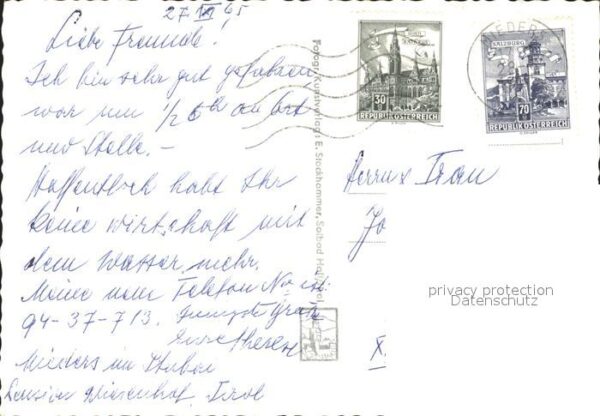 27 VI 65
Liebe Freunde.
Ich bin sehr gut gefahren
war um 1/2 6h an Ort
und Stelle.-
Hoffentlich habt Ihr
keine Wirtschaft mit
dem Wasser mehr.
Meine neue Telefon Nr ist
94-37-713.
Eure Therese
Mieders im Stubai
Pension Wiesenhof, Tirol
Fotogr. Kunstverlag: E. Stockhammer, Solbad Hall
30
REPUBLIK ÖSTERREICH
SALZBURG
70
REPUBLIK ÖSTERREICH
MIEDER
Herrn u Frau
Jo
X.
privacy protection
Datenschutz